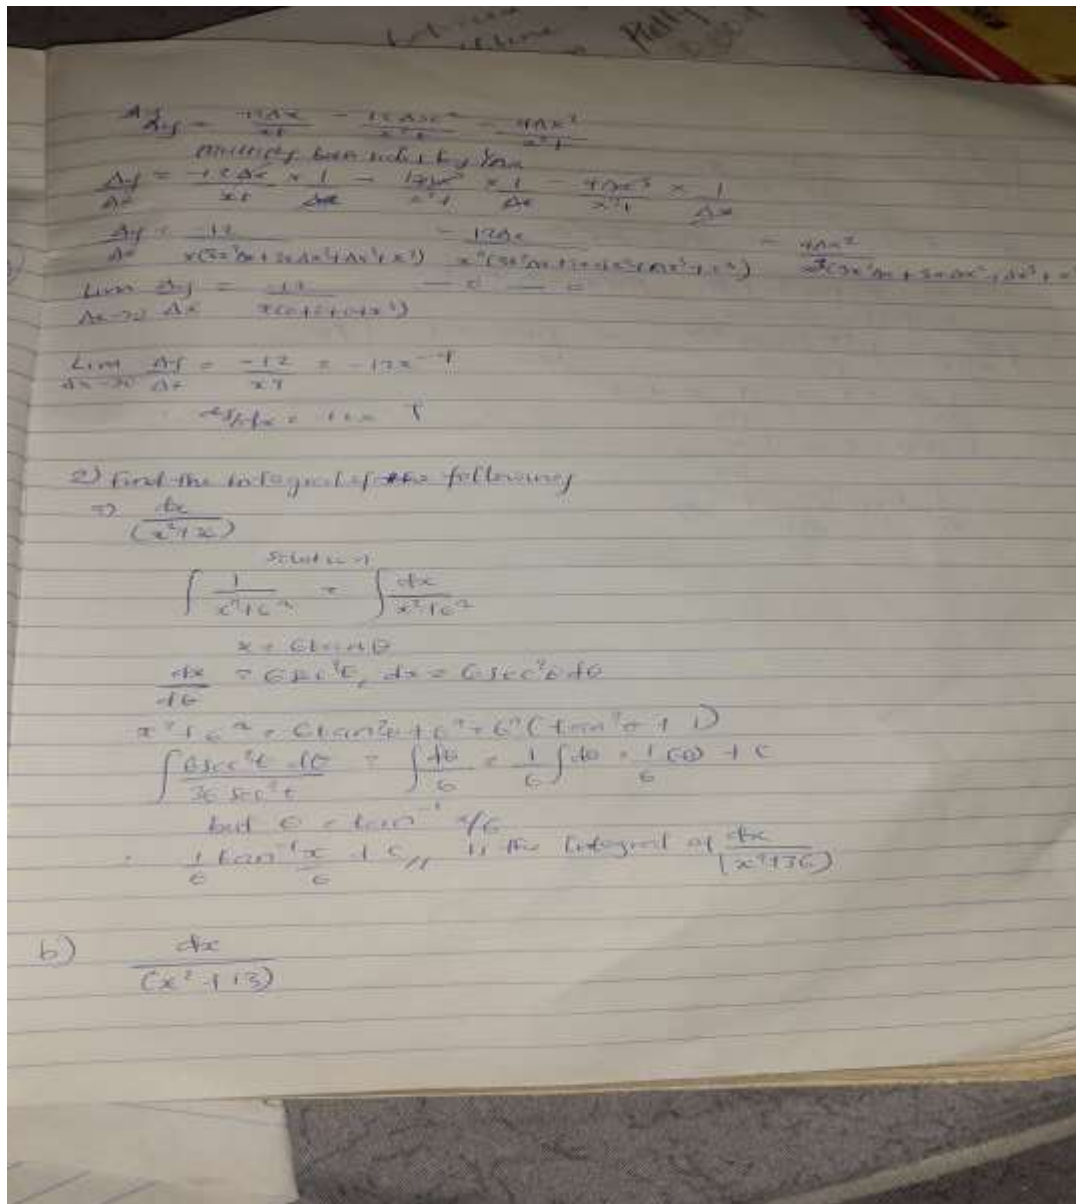 Δy = -12Δx/xt - 12Δx²/x²t - 4Δx³/x³t
multiply both sides by 1/Δx
Δy/Δx = -12Δx/xt × 1/Δx - 12Δx²/x²t × 1/Δx 4Δx³/x³t × 1/Δx
Δy/Δx = -12/x(3x²Δx + 3xΔx² + Δx³ + x³) - 12Δx/x²(3x²Δx + 3xΔx² + Δx³ + x³) - 4Δx²/x³(3x²Δx + 3xΔx² + Δx³ +
Lim Δx→0 Δy/Δx = -12/x(0+0+0+x³) - 0 - 0
Lim Δx→0 Δy/Δx = -12/x⁴ = -12x⁻⁴
2) Find the integral of the following
dx/(x²+36)
Solution
∫ 1/x²+6² = ∫ dx/x²+6²
x = 6tanθ
dx/dθ = 6sec²θ, dx = 6sec²θ dθ
x²+6² = 6tan²θ+6² = 6²(tan²θ + 1)
∫ 6sec²θ dθ/36sec²θ = ∫ dθ/6 = 1/6 ∫dθ = 1/6 (θ) + C
but θ = tan⁻¹ x/6
1/6 tan⁻¹ x/6 + C,, is the Integral of dx/(x²+36)
b) dx/(x²+13)